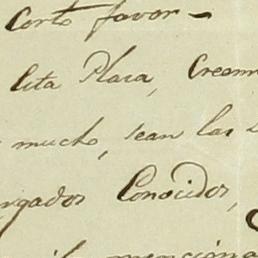 Corto favor -
esta Plasa, Creem
mucho, sean las
rgados Conocidos,
mencion